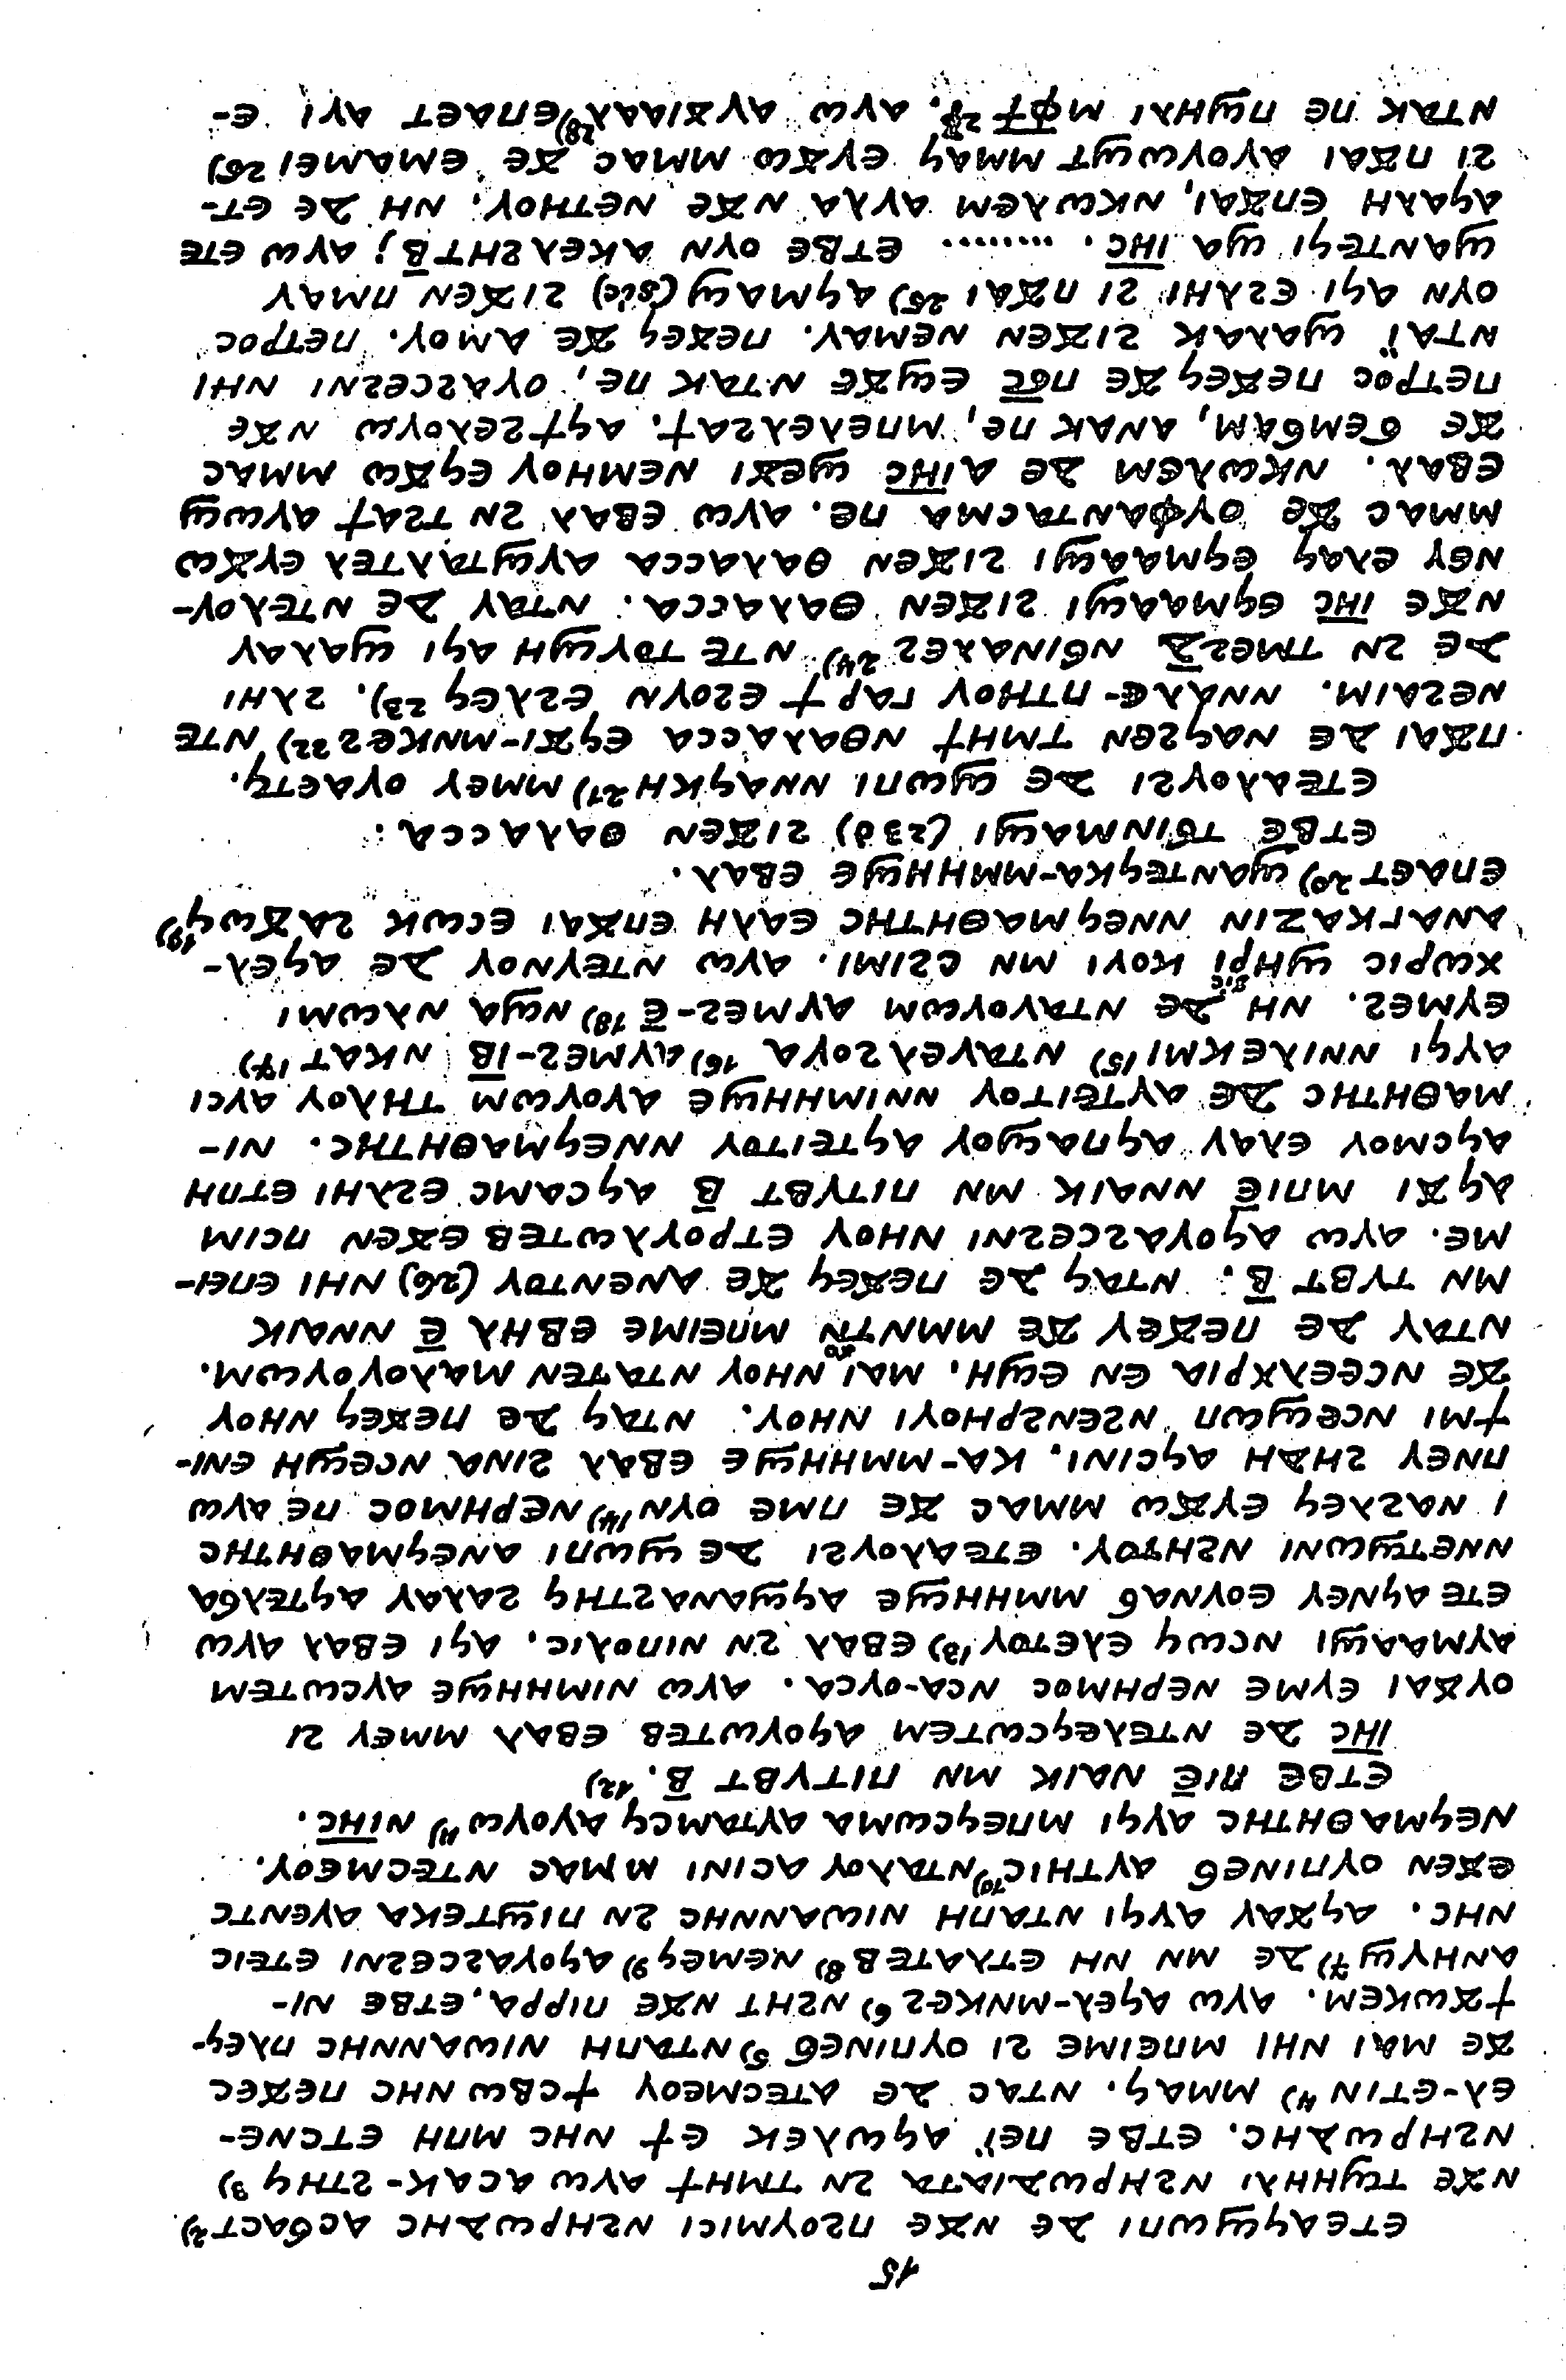 15
ⲉⲧⲉⲁϥϣⲱⲡⲓ ⲇⲉ ⲛϫⲉ ⲡϩⲟⲩⲙⲓⲥⲓ ⲛϩⲏⲣⲱⲇⲏⲥ ⲁⲥϭⲁⲥϯ²⁾
ⲛϫⲉ ⲧϣⲏⲏⲗⲓ ⲛϩⲏⲣⲱⲇⲓⲁⲧⲁ ϩⲛ ⲧⲙⲏϯ ⲁⲩⲱ ⲁⲥⲁⲕ-ϩⲧⲏϥ ³⁾
ⲛϩⲏⲣⲱⲇⲏⲥ. ⲉⲧⲃⲉ ⲡⲉⲓ̈ ⲁϥⲱⲗⲉⲕ ⲉϯ ⲛⲏⲥ ⲙⲡⲏ ⲉⲧⲥⲛⲉ-
ⲉⲗ-ⲉⲧⲓⲛ ⁴⁾ ⲙⲙⲁϥ. ⲛⲧⲁⲥ ⲇⲉ ⲁⲧⲉⲥⲙⲉⲟⲩ ϯⲥⲃⲱ ⲛⲏⲥ ⲡⲉϫⲉⲥ
ϫⲉ ⲙⲁⲓ ⲛⲏⲓ ⲙⲡⲉⲓⲙⲉ ϩⲓ ⲟⲩⲡⲓⲛⲉϭ ⁵⁾ ⲛⲧⲁⲡⲏ ⲛⲓⲱⲁⲛⲛⲏⲥ ⲡⲗⲉϥ-
ϯϫⲱⲕⲉⲙ. ⲁⲩⲱ ⲁϥⲉⲗ-ⲙⲛⲕⲉϩ ⁶⁾ ⲛϩⲏⲧ ⲛϫⲉ ⲡⲓⲣⲣⲁ. ⲉⲧⲃⲉ ⲛⲓ-
ⲁⲛⲏⲩϣ ⁷⁾ ⲇⲉ ⲙⲛ ⲛⲏ ⲉⲧⲗⲁⲧⲉⲃ ⁸⁾ ⲛⲉⲙⲉϥ ⁹⁾ ⲁϥⲟⲩⲁϩⲥⲉϩⲛⲓ ⲉⲧⲉⲓⲥ
ⲛⲏⲥ. ⲁϥϫⲁⲩ ⲁⲩϥⲓ ⲛⲧⲁⲡⲏ ⲛⲓⲱⲁⲛⲛⲏⲥ ϩⲛ ⲡⲓϣⲧⲉⲕⲁ ⲁⲩⲉⲛⲧⲥ
ⲉϫⲉⲛ ⲟⲩⲡⲓⲛⲉϭ ⲁⲩⲧⲏⲓⲥ ¹⁰⁾ ⲛⲧⲁⲗⲟⲩ ⲁⲥⲓⲛⲓ ⲙⲙⲁⲥ ⲛⲧⲉⲥⲙⲉⲟⲩ.
ⲛⲉϥⲙⲁⲑⲏⲧⲏⲥ ⲁⲩϥⲓ ⲙⲡⲉϥⲥⲱⲙⲁ ⲁⲩⲧⲁⲙⲥϥ ⲁⲩⲟⲩⲱ ¹¹⁾ ⲛⲓⲏⲥ̅.
ⲉⲧⲃⲉ ⲡⲓⲉ̅ ⲛⲁⲓⲕ ⲙⲛ ⲡⲓⲧⲩⲃⲧ ⲃ̅. ¹²⁾
ⲓⲏⲥ̅ ⲇⲉ ⲛⲧⲉⲗⲉϥⲥⲱⲧⲉⲙ ⲁϥⲟⲩⲱⲧⲉⲃ ⲉⲃⲁⲗ ⲙⲙⲉⲩ ϩⲓ
ⲟⲩϫⲁⲓ ⲉⲩⲙⲉ ⲛⲉⲣⲏⲙⲟⲥ ⲛⲥⲁ-ⲟⲩⲥⲁ. ⲁⲩⲱ ⲛⲓⲙⲏⲏϣⲉ ⲁⲩⲥⲱⲧⲉⲙ
ⲁⲩⲙⲁⲁϣⲓ ⲛⲥⲱϥ ⲉⲗⲉⲧⲟⲩ ¹³⁾ ⲉⲃⲁⲗ ϩⲛ ⲛⲓⲡⲟⲗⲓⲥ. ⲁϥⲓ ⲉⲃⲁⲗ ⲁⲩⲱ
ⲉⲧⲉ ⲁϥⲛⲉⲩ ⲉⲟⲩⲛⲁϭ ⲙⲙⲏⲏϣⲉ ⲁϥϣⲁⲛⲁϩⲧⲏϥ ϩⲁⲗⲁⲩ ⲁϥⲧⲉⲗϭⲁ
ⲛⲛⲉⲧϣⲱⲛⲓ ⲛϩⲏⲧⲟⲩ. ⲉⲧⲉⲁⲗⲟⲩϩⲓ ⲇⲉ ϣⲱⲡⲓ ⲁⲛⲉϥⲙⲁⲑⲏⲧⲏⲥ
ⲓ ⲛⲁϩⲗⲉϥ ⲉⲩϫⲱ ⲙⲙⲁⲥ ϫⲉ ⲡⲙⲉ ⲟⲩⲛ ¹⁴⁾ ⲛⲉⲣⲏⲙⲟⲥ ⲡⲉ ⲁⲩⲱ
ⲡⲛⲉⲩ ϩⲏⲇⲏ ⲁϥⲥⲓⲛⲓ. ⲕⲁ-ⲙⲙⲏⲏϣⲉ ⲉⲃⲁⲗ ϩⲓⲛⲁ ⲛⲥⲉϣⲏ ⲉⲛⲓ-
ϯⲙⲓ ⲛⲥⲉϣⲱⲡ ⲛϩⲉⲛϩⲣⲏⲟⲩⲓ ⲛⲏⲟⲩ. ⲛⲧⲁϥ ⲇⲉ ⲡⲉϫⲉϥ ⲛⲏⲟⲩ
ϫⲉ ⲛⲥⲉⲉⲗⲭⲣⲓⲁ ⲉⲛ ⲉϣⲏ. ⲙⲁⲓ̈ ⲛⲏⲟⲩ ⲛⲧⲁⲧⲉⲛ ⲙⲁⲗⲟⲩⲟⲩⲱⲙ.
ⲛⲧⲁⲩ ⲇⲉ ⲡⲉϫⲉⲩ ϫⲉ ⲙⲙⲛⲧⲛ ⲙⲡⲉⲓⲙⲉ ⲉⲃⲏⲗ ⲉ̅ ⲛⲛⲁⲓⲕ
ⲙⲛ ⲧⲩⲃⲧ ⲃ̅. ⲛⲧⲁϥ ⲇⲉ ⲡⲉϫⲉϥ ϫⲉ ⲁⲛⲉⲛⲧⲟⲩ (26) ⲛⲏⲓ ⲉⲡⲉⲓ-
ⲙⲉ. ⲁⲩⲱ ⲁϥⲟⲩⲁϩⲥⲉϩⲛⲓ ⲛⲏⲟⲩ ⲉⲧⲣⲟⲩⲗⲱⲧⲉⲃ ⲉϫⲉⲛ ⲡⲥⲓⲙ
ⲁϥϫⲓ ⲙⲡⲓⲉ̅ ⲛⲛⲁⲓⲕ ⲙⲛ ⲡⲓⲧⲩⲃⲧ ⲃ̅ ⲁϥⲥⲁⲙⲥ ⲉϩⲗⲏⲓ ⲉⲧⲡⲏ
ⲁϥⲥⲙⲟⲩ ⲉⲗⲁⲩ ⲁϥⲡⲁϣⲟⲩ ⲁϥⲧⲉⲓⲧⲟⲩ ⲛⲛⲉϥⲙⲁⲑⲏⲧⲏⲥ. ⲛⲓ-
ⲙⲁⲑⲏⲧⲏⲥ ⲇⲉ ⲁⲩⲧⲉⲓⲧⲟⲩ ⲛⲛⲓⲙⲏⲏϣⲉ ⲁⲩⲟⲩⲱⲙ ⲧⲏⲗⲟⲩ ⲁⲩⲥⲓ
ⲁⲩϥⲓ ⲛⲛⲓⲗⲉⲕⲙⲓ ¹⁵⁾ ⲛⲧⲁⲩⲉⲗϩⲟⲩⲁ ¹⁶⁾ ⲁⲩⲙⲉϩ-ⲓⲃ̅ ⲛⲕⲁⲧ ¹⁷⁾
ⲉⲩⲙⲉϩ. ⲛⲏ ⲇⲉ ⲛⲧⲁⲩⲟⲩⲱⲙ ⲁⲩⲙⲉϩ-ⲉ̅ ¹⁸⁾ ⲛϣⲁ ⲛⲗⲱⲙⲓ
ⲭⲱⲣⲓⲥ ϣⲏⲣⲓ (sic) ⲕⲟⲩⲓ ⲙⲛ ⲥϩⲓⲙⲓ. ⲁⲩⲱ ⲛⲧⲉⲩⲛⲟⲩ ⲇⲉ ⲁϥⲉⲗ-
ⲁⲛⲁⲅⲕⲁⲍⲓⲛ ⲛⲛⲉϥⲙⲁⲑⲏⲧⲏⲥ ⲉⲁⲗⲏ ⲉⲡϫⲁⲓ ⲉⲥⲱⲕ ϩⲁϫⲱϥ ¹⁹⁾
ⲉⲡⲁⲉⲧ ²⁰⁾ ϣⲁⲛⲧⲉϥⲕⲁ-ⲙⲙⲏⲏϣⲉ ⲉⲃⲁⲗ.
ⲉⲧⲃⲉ ⲧϭⲓⲛⲙⲁϣⲓ (23∂) ϩⲓϫⲉⲛ ⲑⲁⲗⲁⲥⲥⲁ:
ⲉⲧⲉⲁⲗⲟⲩϩⲓ ⲇⲉ ϣⲱⲡⲓ ⲛⲛⲁϥⲕⲏ ²¹⁾ ⲙⲙⲉⲩ ⲟⲩⲁⲉⲧϥ.
ⲡϫⲁⲓ ⲇⲉ ⲛⲁϥϩⲉⲛ ⲧⲙⲏϯ ⲛⲑⲁⲗⲁⲥⲥⲁ ⲉϥϫⲓ-ⲙⲛⲕⲉϩ ²²⁾ ⲛⲧⲉ
ⲛⲉϩⲁⲓⲙ. ⲛⲛⲁⲗⲉ-ⲡⲧⲏⲟⲩ ⲅⲁⲣ ϯ ⲉϩⲟⲩⲛ ⲉϩⲗⲉϥ ²³⁾. ϩⲗⲏⲓ
ⲇⲉ ϩⲛ ⲧⲙⲉϩⲇ̅ ⲛϭⲓⲛⲁⲗⲉϩ ²⁴⁾ ⲛⲧⲉ ⲧⲟⲩϣⲏ ⲁϥⲓ ϣⲁⲗⲁⲩ
ⲛϫⲉ ⲓⲏⲥ̅ ⲉϥⲙⲁⲁϣⲓ ϩⲓϫⲉⲛ ⲑⲁⲗⲁⲥⲥⲁ. ⲛⲧⲁⲩ ⲇⲉ ⲛⲧⲉⲗⲟⲩ-
ⲛⲉⲩ ⲉⲗⲁϥ ⲉϥⲙⲁⲁϣⲓ ϩⲓϫⲉⲛ ⲑⲁⲗⲁⲥⲥⲁ ⲁⲩϣⲧⲁⲗⲧⲉⲗ ⲉⲩϫⲱ
ⲙⲙⲁⲥ ϫⲉ ⲟⲩⲫⲁⲛⲧⲁⲥⲙⲁ ⲡⲉ. ⲁⲩⲱ ⲉⲃⲁⲗ ϩⲛ ⲧϩⲁϯ ⲁⲩⲱϣ
ⲉⲃⲁⲗ. ⲛⲕⲱⲗⲉⲙ ⲇⲉ ⲁⲓⲏⲥ̅ ϣⲉϫⲓ ⲛⲉⲙⲏⲟⲩ ⲉϥϫⲱ ⲙⲙⲁⲥ
ϫⲉ ϭⲉⲙϭⲁⲙ, ⲁⲛⲁⲕ ⲡⲉ, ⲙⲡⲉⲗⲉⲗϩⲁϯ. ⲁϥϯϩⲉⲗⲟⲩⲱ ⲛϫⲉ
ⲡⲉⲧⲣⲟⲥ ⲡⲉϫⲉϥ ϫⲉ ⲡϭⲥ̅ ⲉϣϫⲉ ⲛⲧⲁⲕ ⲡⲉ, ⲟⲩⲁϩⲥⲉϩⲛⲓ ⲛⲏⲓ
ⲛⲧⲁⲓ̈ ϣⲁⲗⲁⲕ ϩⲓϫⲉⲛ ⲛⲉⲙⲁⲩ. ⲡⲉϫⲉϥ ϫⲉ ⲁⲙⲟⲩ. ⲡⲉⲧⲣⲟⲥ
ⲟⲩⲛ ⲁϥⲓ ⲉϩⲗⲏⲓ ϩⲓ ⲡϫⲁⲓ ²⁵⁾ ⲁϥⲙⲁϣ (sic) ϩⲓϫⲉⲛ ⲡⲙⲁⲩ
ϣⲁⲛⲧⲉϥⲓ ϣⲁ ⲓⲏⲥ̅. ......... ⲉⲧⲃⲉ ⲟⲩⲛ ⲁⲕⲉⲗϩⲏⲧⲃ̅; ⲁⲩⲱ ⲉⲧⲉ
ⲁϥⲁⲗⲏ ⲉⲡϫⲁⲓ, ⲛⲕⲱⲗⲉⲙ ⲁⲩⲗⲁ ⲛϫⲉ ⲛⲉⲧⲏⲟⲩ. ⲛⲏ ⲇⲉ ⲉⲧ-
ϩⲓ ⲡϫⲁⲓ ⲁⲩⲟⲩⲱϣⲧ ⲙⲙⲁϥ ⲉⲩϫⲱ ⲙⲙⲁⲥ ϫⲉ ⲉⲙⲁⲙⲉⲓ ²⁶⁾
ⲛⲧⲁⲕ ⲡⲉ ⲡϣⲏⲗⲓ ⲙⲫϯ̅ ²⁷⁾. ⲁⲩⲱ ⲁⲩϫⲓⲁⲁⲗ ²⁸⁾ ⲉⲡⲁⲉⲧ ⲁⲩⲓ ⲉ-